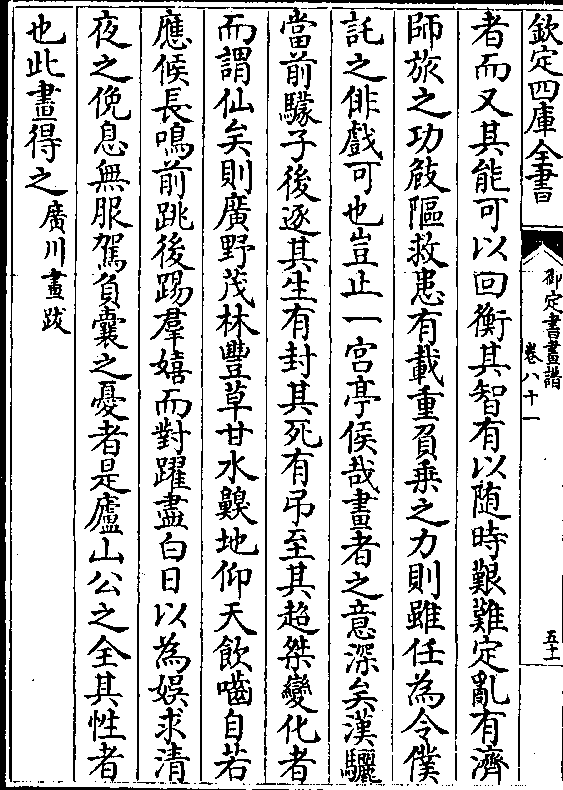 欽定四庫全書
御定書畫譜
卷八十一
五十二
者而又其能可以回衡其智有以随時艱難定亂有濟
師旅之功敵隔救患有載重負乗之力則雖任為令僕
託之俳戲可也豈止一宫亭侯哉畫者之意深矣漢驪
當前驜子後逐其生有封其死有弔至其超桀變化者
而謂仙矣則廣野茂林豐草甘水鼿地仰天飲嚙自若
應候長鳴前跳後踢羣嬉而對躍盡白日以為娯求清
夜之俛息無服駕負囊之憂者是廬山公之全其性者
也此畫得之廣川畫跋